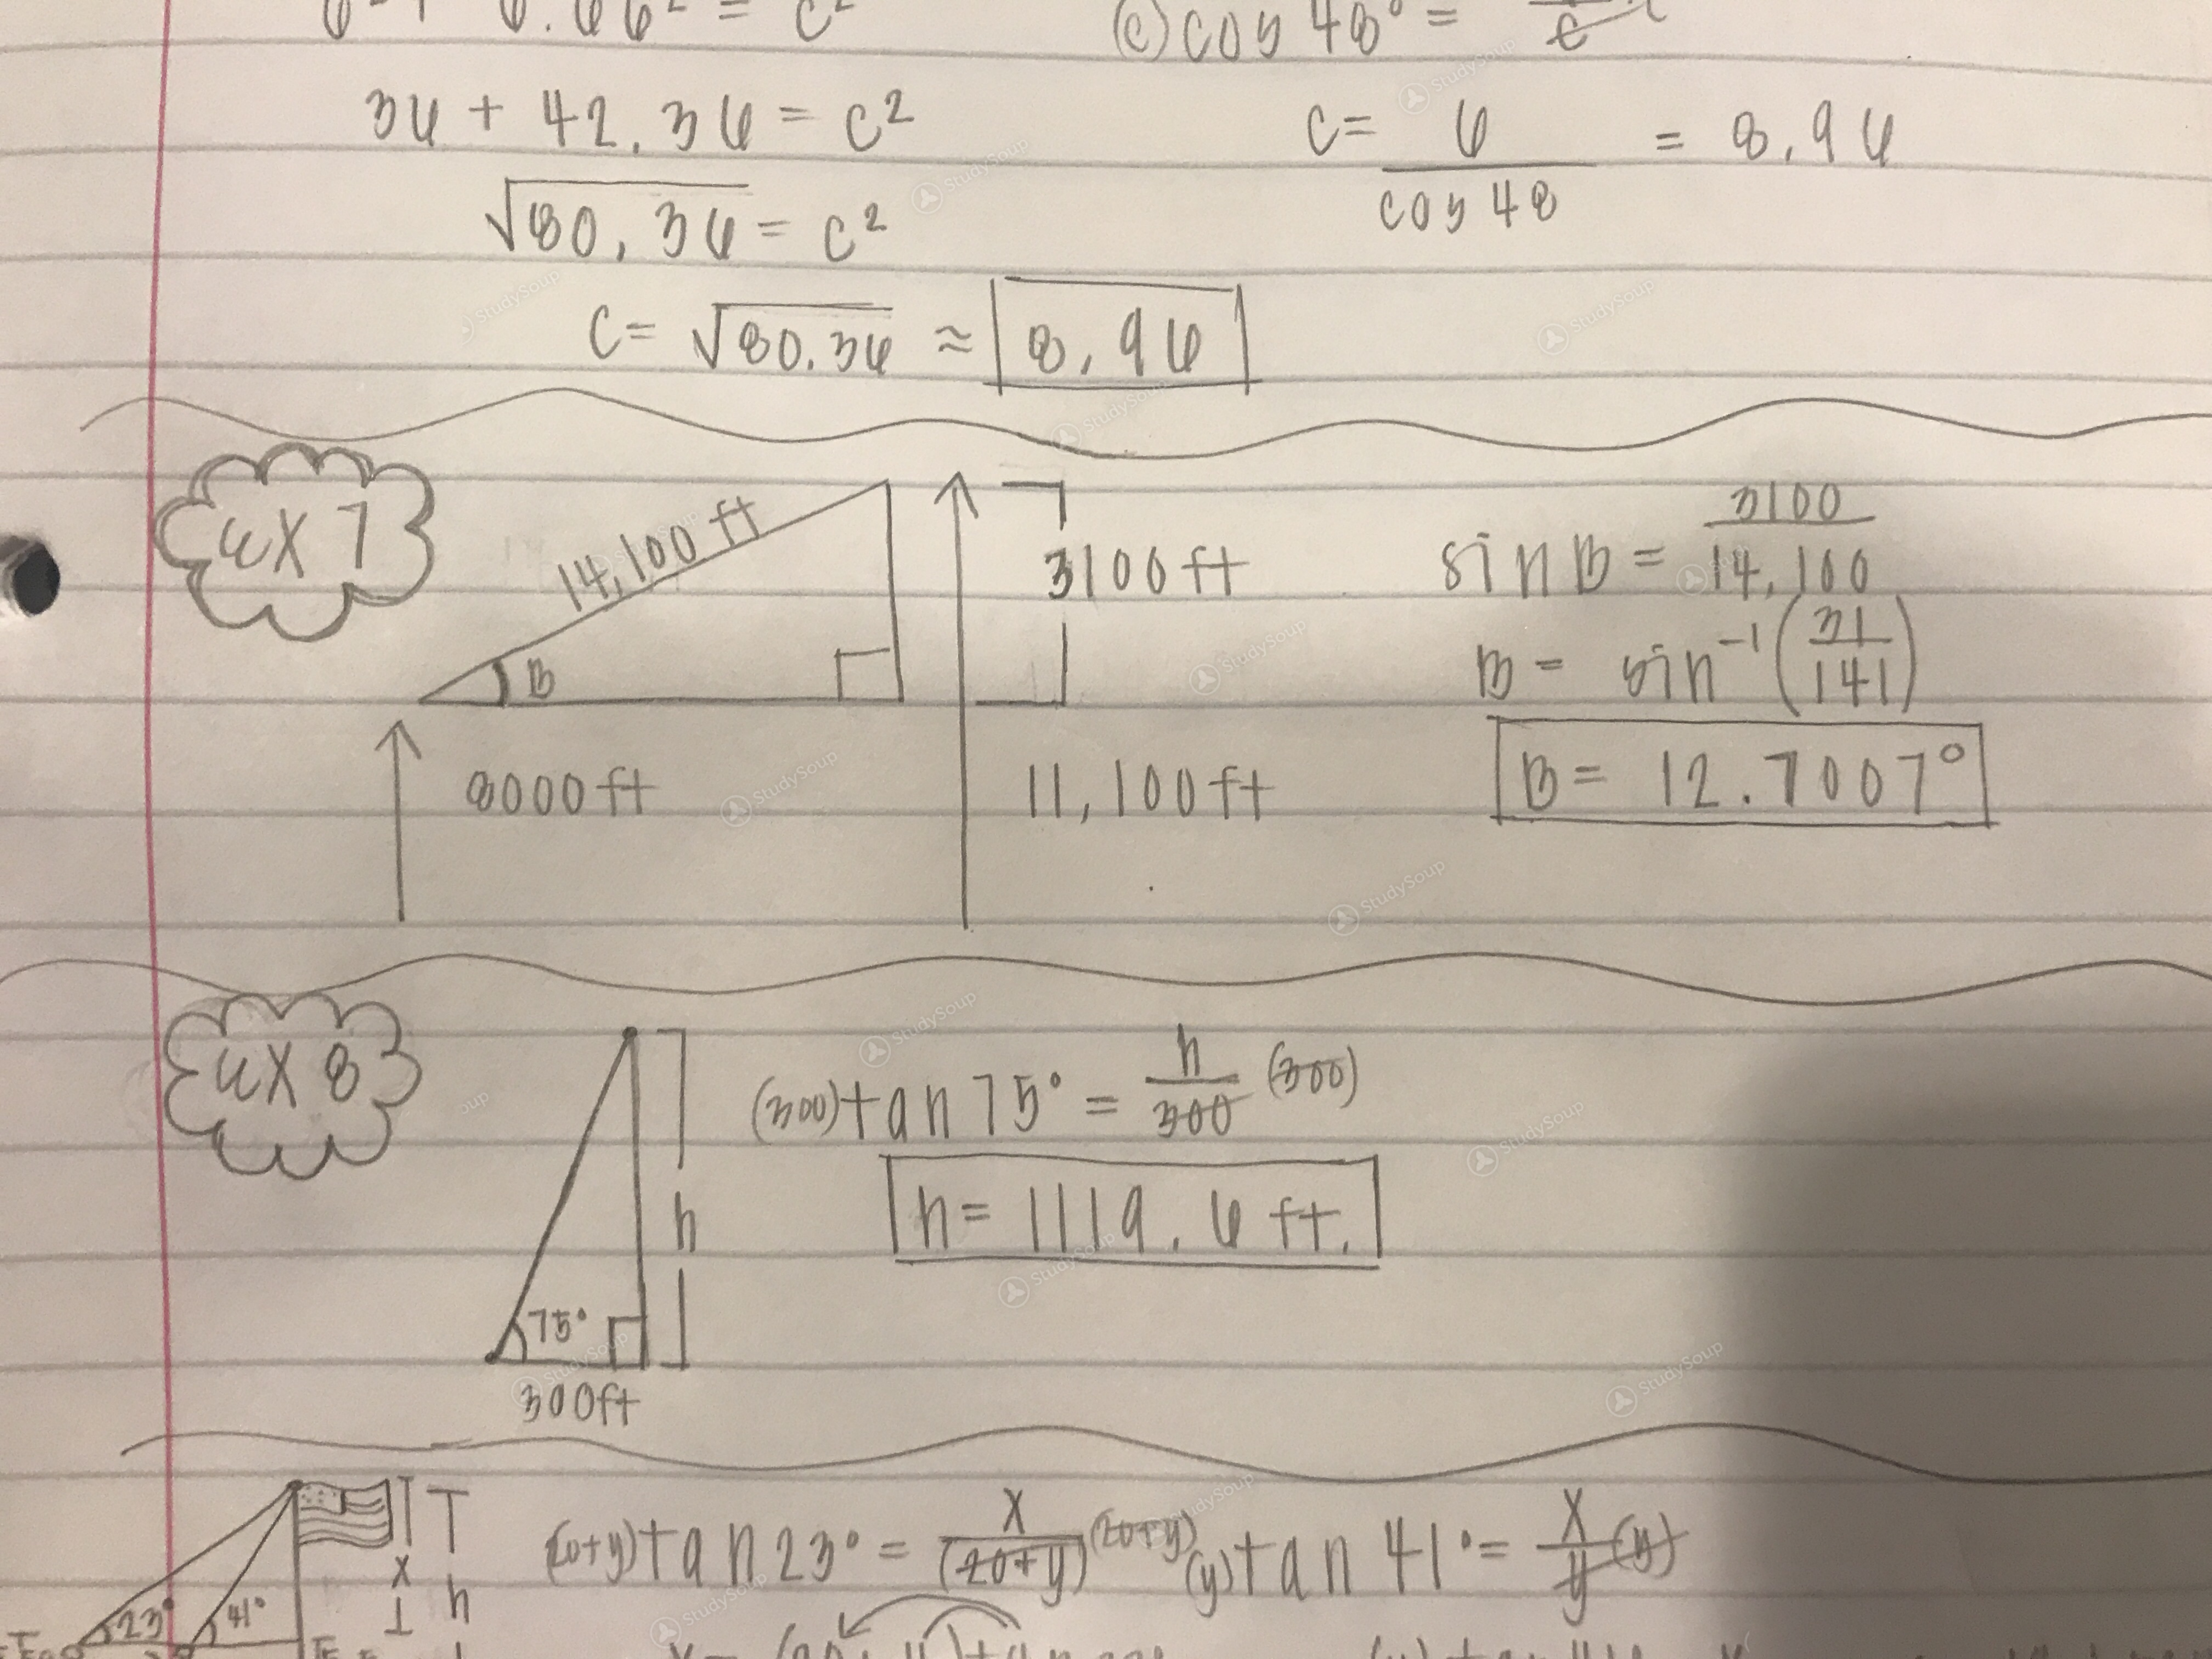 6² + 6.66² = c²
(c) cos 48° =
36 + 42.36 = c²
c = 6 / cos 48 = 8.96
√80.36 = c²
c = √80.36 ≈ 8.96
EX 7
14,100 ft
B
8000 ft
3100 ft
11,100 ft
sin B = 3100 / 14,100
B = sin⁻¹ (31 / 141)
B = 12.7007°
EX 8
75°
300 ft
h
(300) tan 75° = h / 300 (300)
h = 1119.6 ft.
23°
41°
x
h
(20+y) tan 23° = x / (20+y) (20+y)
(y) tan 41° = x / y (y)
StudySoup